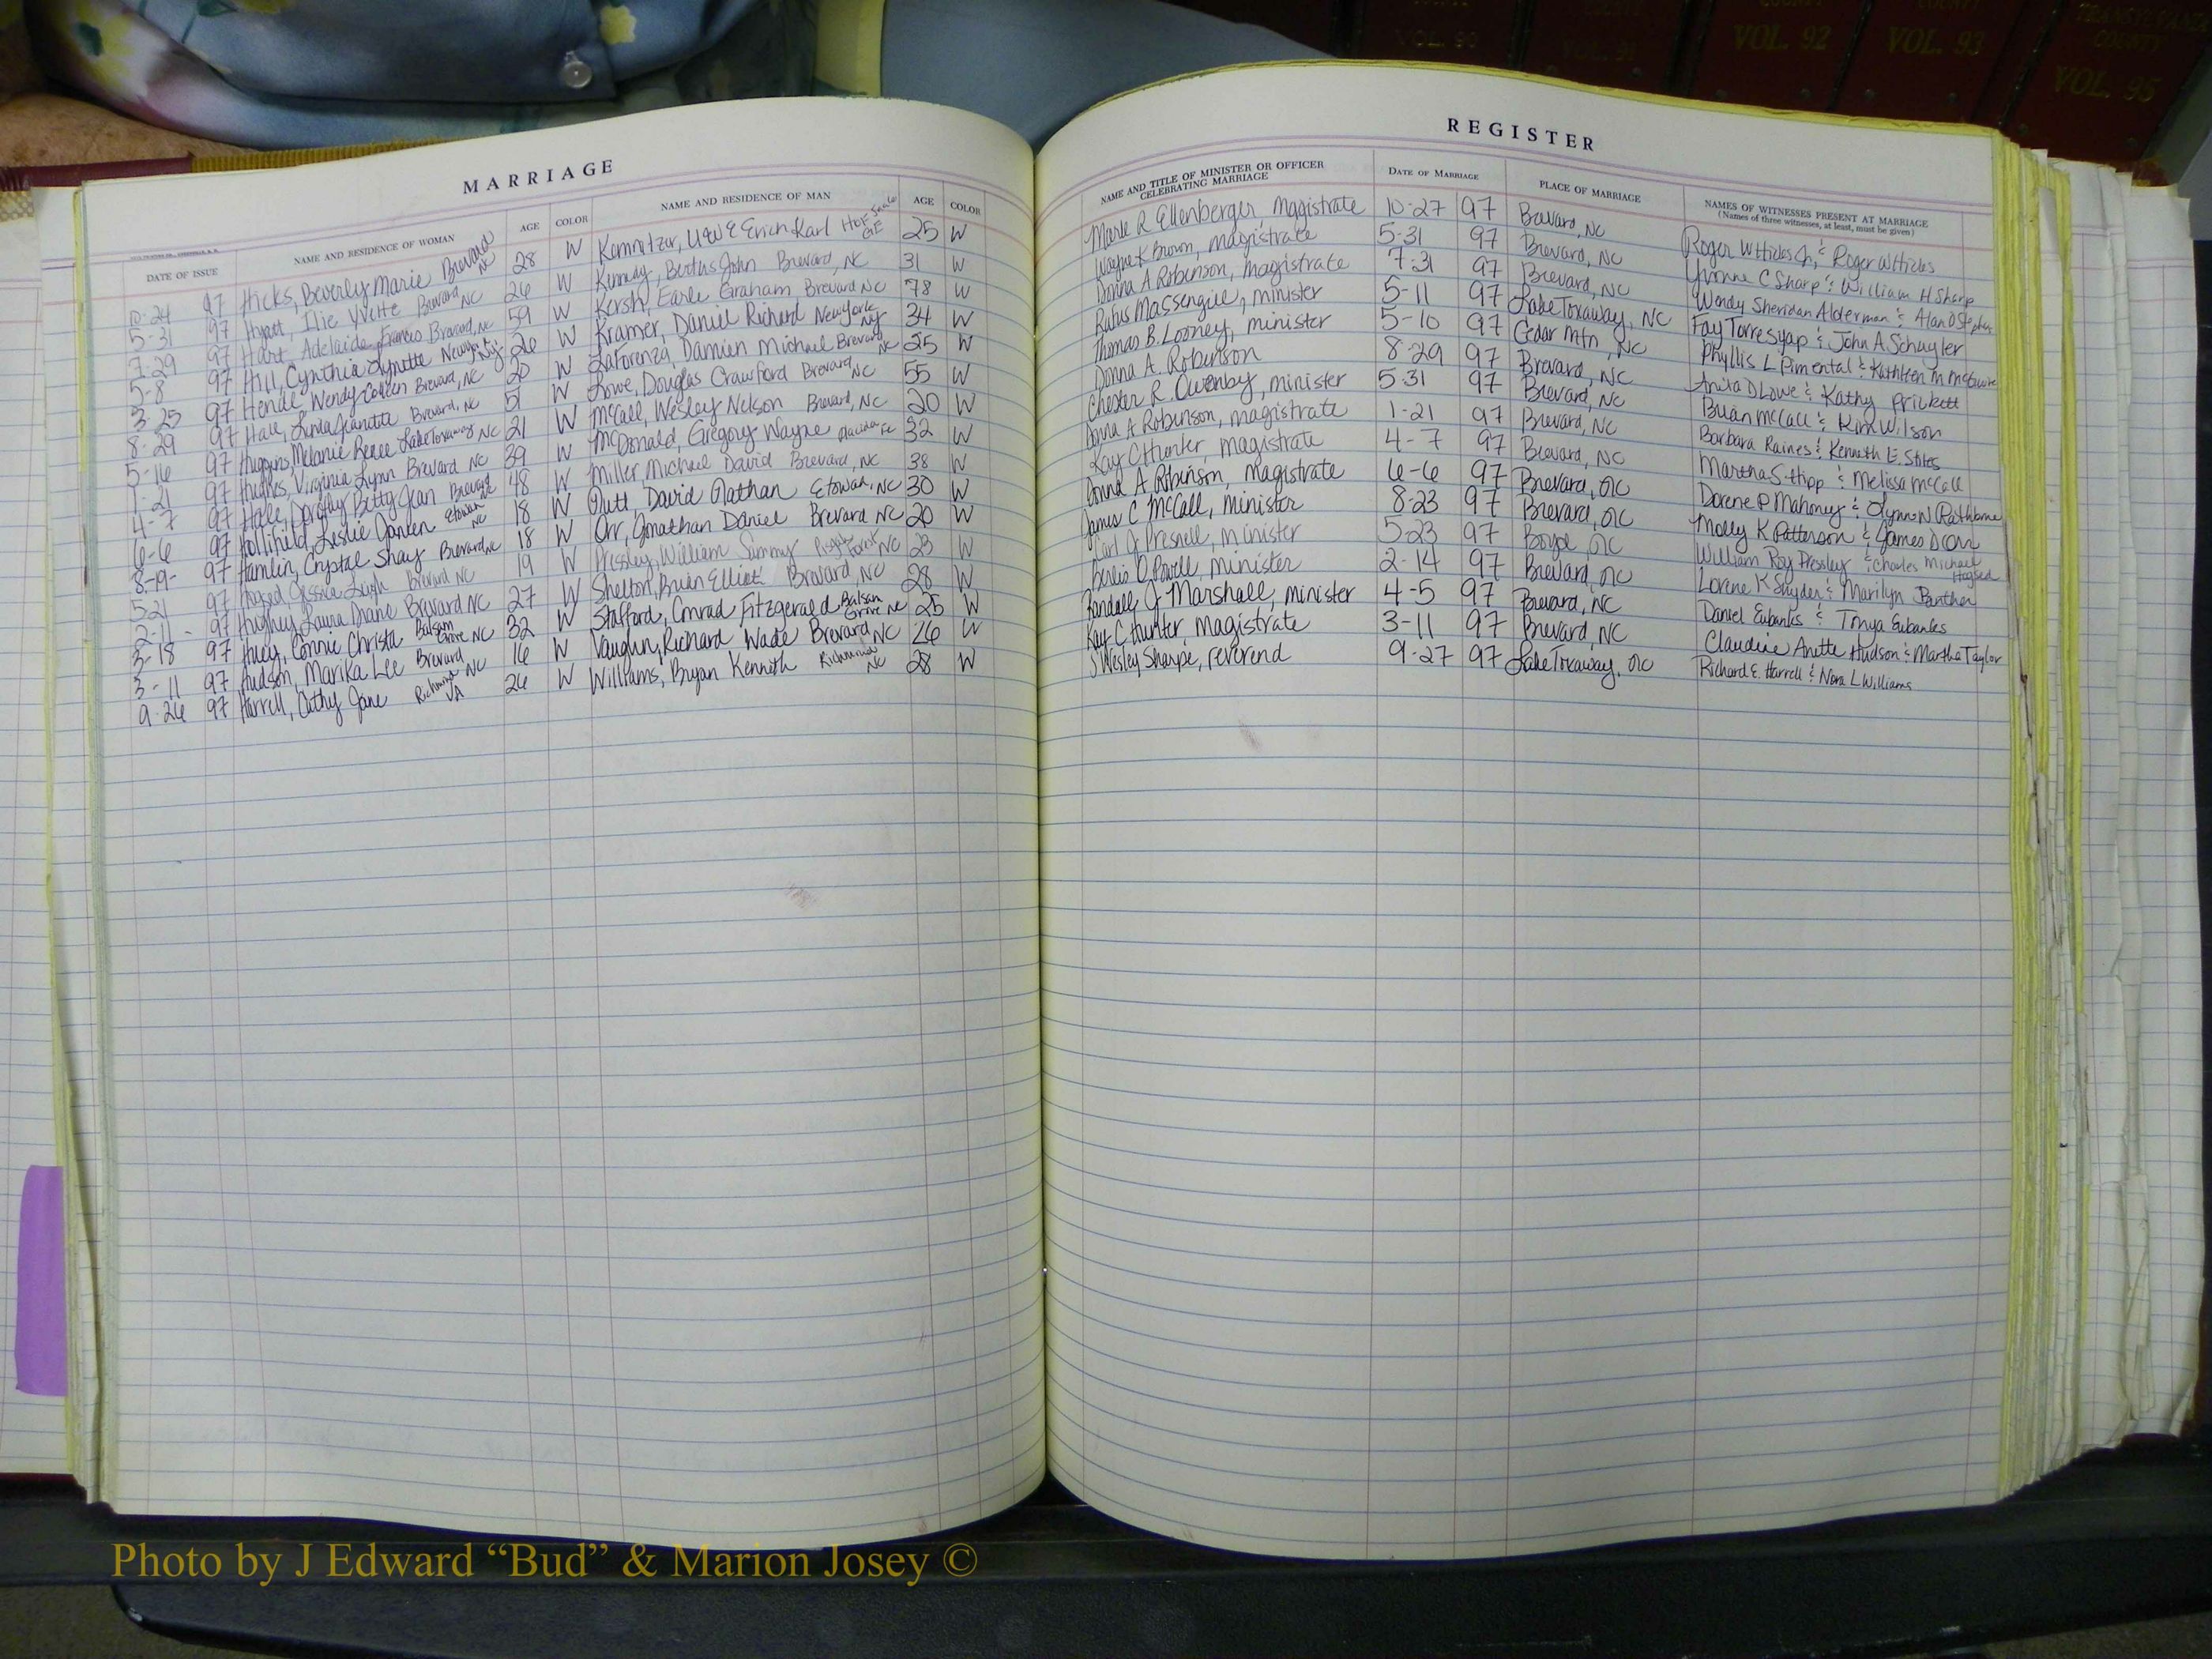 VOL. 90
VOL. 91
COUNTY VOL. 92
COUNTY VOL. 93
TRANSYLVANIA COUNTY VOL. 95
MARRIAGE
REGISTER
DATE OF ISSUE NAME AND RESIDENCE OF WOMAN AGE COLOR NAME AND RESIDENCE OF MAN AGE COLOR NAME AND TITLE OF MINISTER OR OFFICER CELEBRATING MARRIAGE DATE OF MARRIAGE PLACE OF MARRIAGE NAMES OF WITNESSES PRESENT AT MARRIAGE (Names of three witnesses, at least, must be given)
10-24 97 Hicks, Beverly Marie Brevard NC 28 W Kemnitzer, Uwe Erich Karl GE 25 W Mark R Ellenberger, Magistrate 10-27 97 Brevard, NC Roger W Hicks Jr, & Roger W Hicks
5-31 97 Hyatt, Ilie Yvette Brevard, NC 26 W Kennedy, Bertus John Brevard, NC 31 W Wayne K Brown, magistrate 5-31 97 Brevard, NC Yvonne C Sharp & William H Sharp
7-29 97 Hart, Adelaide Frances Brevard, NC 59 W Kersh, Earle Graham Brevard NC 78 W Donna A Robinson, magistrate 7-31 97 Brevard, NC Wendy Sheridan Alderman & Alan D
5-8 97 Hill, Cynthia Lynette New York, NY 26 W Kramer, Daniel Richard New York NY 34 W Rufus Massengill, minister 5-11 97 Lake Toxaway, NC Fay Torresyap & John A. Schuyler
3-25 97 Wendy Colleen Brevard, NC 20 W LaForenza, Damien Michael Brevard NC 25 W Thomas B. Looney, minister 5-10 97 Cedar Mtn, NC Phyllis L Pimental & Kathleen M McGuire
8-29 97 Hall, Linda Jeanette Brevard, NC 51 W Lowe, Douglas Crawford Brevard, NC 55 W Donna A. Robinson 8-29 97 Brevard, NC Anita D Lowe & Kathy Prickett
5-16 97 Huggins, Melanie Renee Lake Toxaway NC 21 W McCall, Wesley Nelson Brevard, NC 20 W Chester R. Owenby, minister 5-31 97 Brevard, NC Brian McCall & Kirk Wilson
1-21 97 Hughes, Virginia Lynn Brevard NC 39 W McDonald, Gregory Wayne Placida FL 32 W Donna A Robinson, magistrate 1-21 97 Brevard, NC Barbara Raines & Kenneth E. Stiles
4-7 97 Hall, Dorothy Betty Jean Brevard NC 48 W Miller, Michael David Brevard, NC 38 W Kay C Hunter, magistrate 4-7 97 Brevard, NC Martha S. Hipp & Melissa McCall
6-6 97 Hollifield, Leslie Etowah NC 18 W Nutt, David Nathan Etowah, NC 30 W Donna A Robinson, magistrate 6-6 97 Brevard, NC Dorene P Mahoney & Lynn N Rathbone
8-19- 97 Hamlin, Crystal Shay Brevard NC 18 W Orr, Jonathan Daniel Brevard NC 20 W James C McCall, Minister 8-23 97 Brevard, NC Molly K Patterson & James D Orr
5-21 97 Hogsed, Jessica Leigh Brevard NC 19 W Pressley, William Sammy Pisgah Forest NC 23 W Carl J Presnell, minister 5-23 97 Boyce, NC William Roy Pressley & Charles Michael Hogsed
2-11 97 Hughey, Laura Diane Brevard NC 27 W Shelton, Brian Elliot Brevard, NC 28 W O Powell, minister 2-14 97 Brevard, NC Lorene K Snyder & Marilyn Panther
3-18 97 Huey, Connie Christa Balsam Grove NC 32 W Stafford, Conrad Fitzgerald Balsam Grove NC 25 W Randall J Marshall, minister 4-5 97 Brevard, NC Daniel Eubanks & Tonya Eubanks
3-11 97 Hudson, Marika Lee Brevard NC 16 W Vaughn, Richard Wade Brevard NC 26 W Kay C Hunter, magistrate 3-11 97 Brevard, NC Claudine Anette Hudson & Martha Taylor
9-26 97 Harrell, Cathy Jane Richmond VA 26 W Williams, Bryan Kennith Richmond NC 28 W J Wesley Sharpe, reverend 9-27 97 Lake Toxaway, NC Richard E. Harrell & Nora L Williams
Photo by J Edward “Bud” & Marion Josey ©